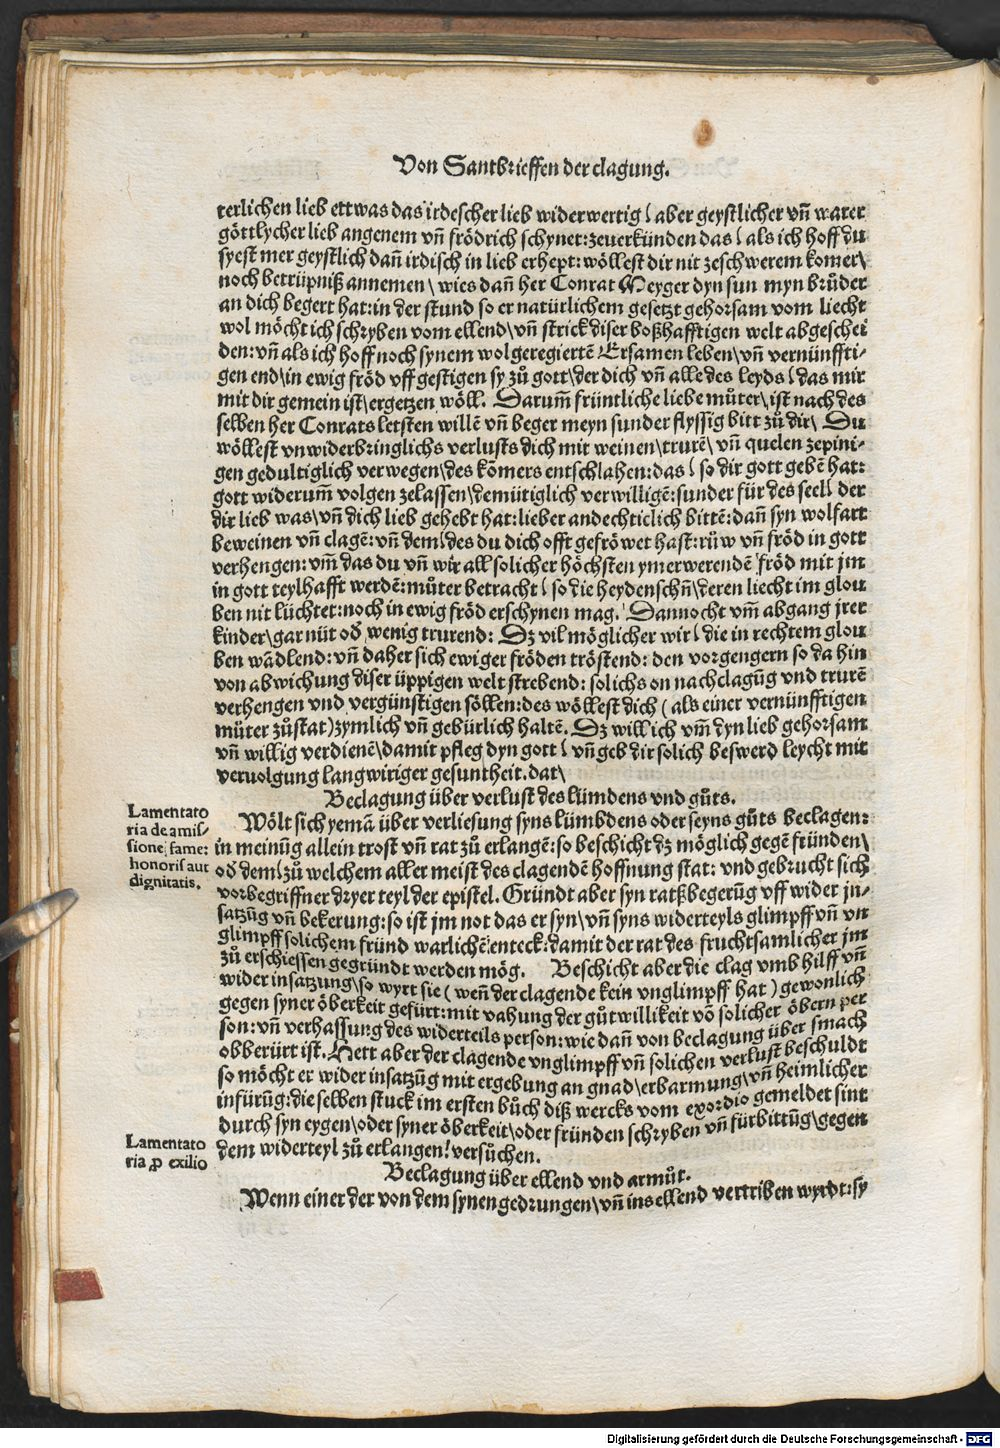 Von Santbrieffen der clagung.
terlichen lieb ettwas das irdescher lieb widerwertig/ aber geystlicher vn̄ warer
göttlycher lieb angenem vn̄ frödrich schynet: zeuerkünden das/ als ich hoff du
syest mer geystlich dan̄ irdisch in lieb erhept: wöllest dir nit zeschwerem komer\
noch betrüpniß annemen\ wies dan̄ her Conrat Meyger dyn sun myn brůder
an dich begert hat: in der stund so er natürlichem gesetzt gehorsam vom liecht
wol möcht ich schryben vom ellend\ vn̄ strick diser boßhafftigen welt abgeschei
den: vn̄ als ich hoff noch synem wolgeregiertē Ersamen leben\ vn̄ vernünffti-
gen end\ in ewig fröd vff gestigen sy zů gott\ der dich vn̄ alle des leyds/ das mir
mit dir gemein ist\ ergetzen wöll. Darum̄ früntliche liebe můter\ ist nach des
selben her Conrats letsten willē vn̄ beger meyn sunder flyssig bitt zů dir\ Du
wöllest vnwiderbringlichs verlusts dich mit weinen\ trurē\ vn̄ quelen zepini-
gen gedultiglich verwegen\ des kōmers entschlahen: das/ so dir gott gebē hat:
gott widerum̄ volgen zelassen\ demütiglich verwilligē: sunder für des seel/ der
dir lieb was\ vn̄ dich lieb gehebt hat: lieber andechticlich bittē: dan̄ syn wolfart
beweinen vn̄ clagē: vn̄ dem/ des du dich offt gefröwet hast: růw vn̄ fröd in gott
verhengen: vm̄ das du vn̄ wir all solicher höchsten ymerwerendē fröd mit jm
in gott teylhafft werdē: můter betracht/ so die heydenschn̄/ deren liecht im glou
ben nit lüchtet: noch in ewig fröd erschynen mag. Dannocht vm̄ abgang jrer
kinder\ gar nüt oð wenig trurend: Dz vil möglicher wir/ die in rechtem glou
ben wādlend: vn̄ daher sich ewiger fröden tröstend: den vorgengern so da hin
von abwichung diser üppigen welt strebend: solichs on nachclagūg vnd trurē
verhengen vnd vergünstigen söllen: des wöllest dich (als einer vernünfftigen
můter zůstat) zymlich vn̄ gebürlich haltē. Dz will ich vm̄ dyn lieb gehorsam
vn̄ willig verdienē\ damit pfleg dyn gott/ vn̄ geb dir solich beswerd leycht mit
veruolgung langwiriger gesuntheit. dat\
Beclagung über verlust des lümdens vnd gůts.
Lamentato
ria de amis-
sione fame:
honoris aut
dignitatis.
Wölt sich yemā über verliesung syns lümbdens oder seyns gůts beclagen:
in meinūg allein trost vn̄ rat zů erlangē: so beschicht dz möglich gegē fründen\
oð dem/ zů welchem aller meist des clagendē hoffnung stat: vnd gebrucht sich
vorbegriffner dryer teyl der epistel. Gründt aber syn ratßbegerūg vff wider jn-
satzūg vn̄ bekerung: so ist jm not das er syn\ vn̄ syns widerteyls glimpff vn̄ vn
glimpff solichem fründ warlichē enteck: damit der rat des fruchtsamlicher jm
zů erschiessen gegründt werden mög. Beschicht aber die clag vmb hilff vn̄
wider insatzung\ so wyrt sie (wen̄ der clagende kein vnglimpff hat) gewonlich
gegen syner öberkeit gefürt: mit vahung der gůtwillikeit vō solicher öbern per
son: vn̄ verhassung des widerteils person: wie dan̄ von beclagung über smach
obberürt ist. Hett aber der clagende vnglimpff vn̄ solichen verlust beschuldt
so möcht er wider insatzūg mit ergebung an gnad\ erbarmung\ vn̄ heimlicher
infürūg: die selben stuck im ersten bůch diß wercks vom exordio gemeldet sint
durch syn eygen\ oder syner öberkeit\ oder fründen schryben vn̄ fürbittūg\ gegen
dem widerteyl zů erlangen! versůchen.
Lamentato
ria ꝓ exilio
Beclagung über ellend vnd armůt.
Wenn einer der von dem synen gedrungen\ vn̄ ins ellend vertriben wyrdt: sy
Digitalisierung gefördert durch die Deutsche Forschungsgemeinschaft - DFG